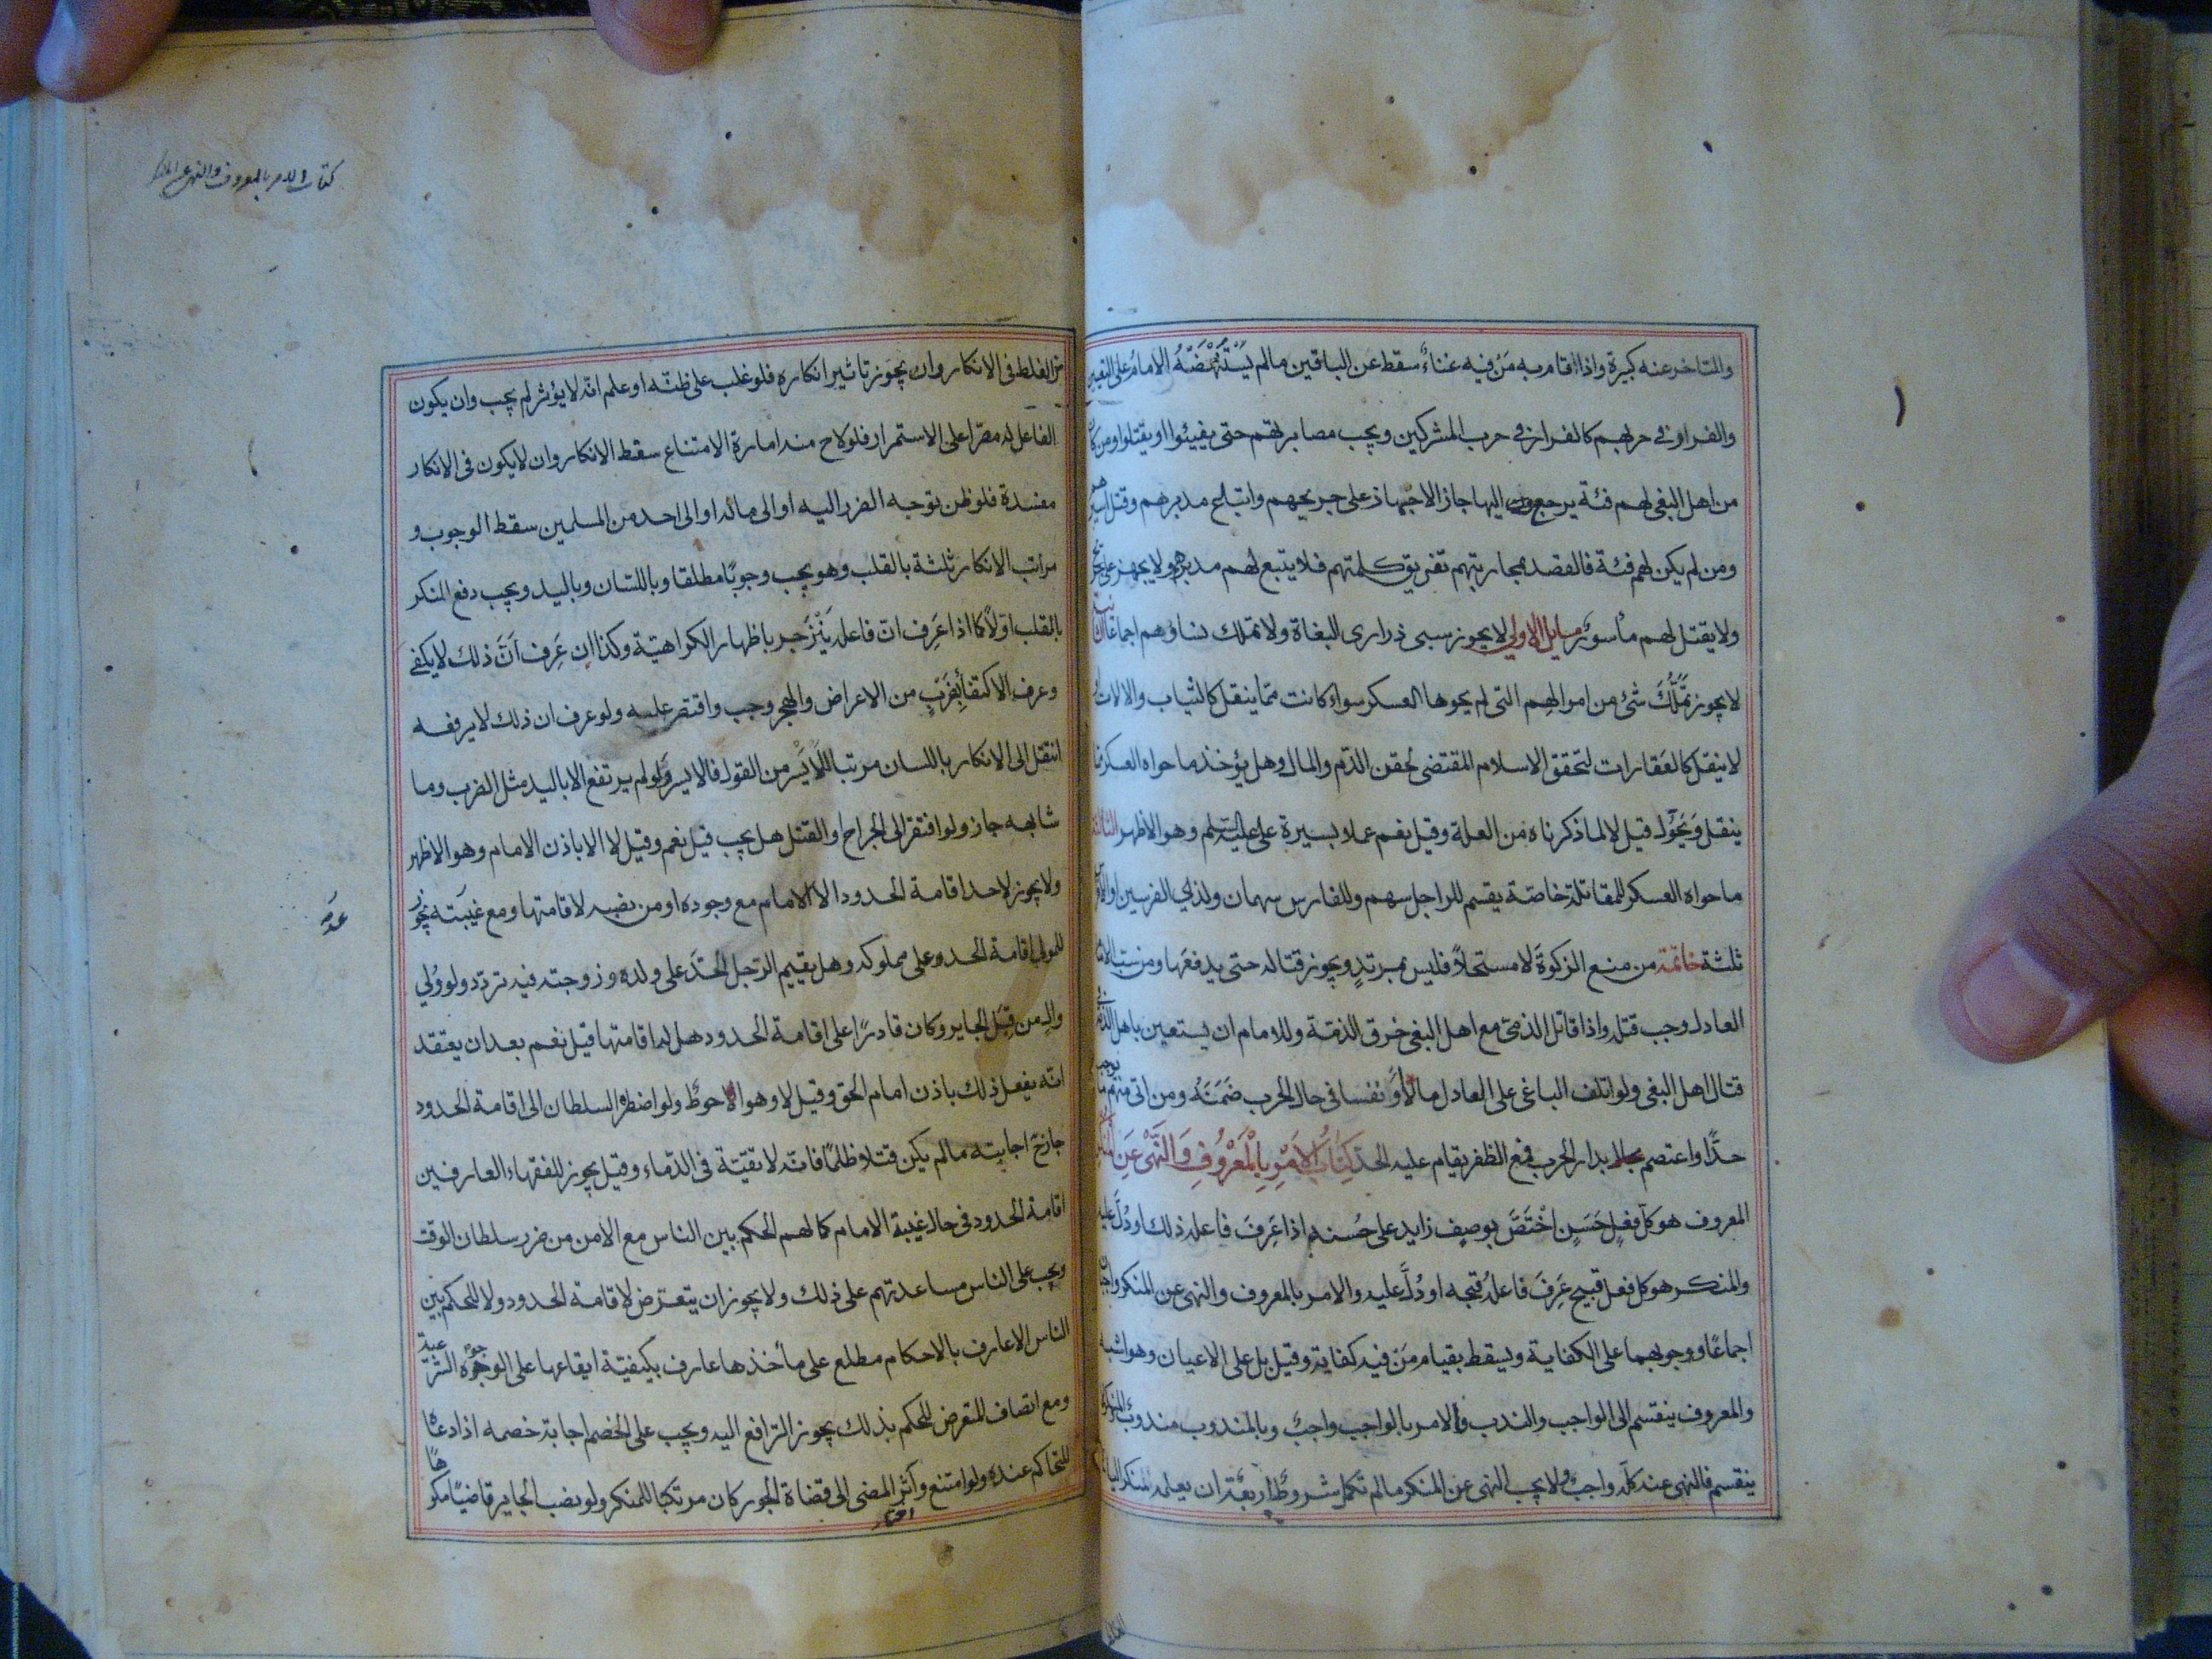 والمتاخر عنه كبيرة واذا اقام به من فيه غناء سقط عن الباقين مالم يستنهضه الامام على التعيين
والفرار في حربهم كالفرار في حرب المشركين ويجب مصابرتهم حتى يفيئوا او يقتلوا ومن كان
من اهل البغى لهم فئة يرجع اليها جاز الاجهاز على جريحهم واتباع مدبرهم وقتل اسيرهم
ومن لم يكن لهم فئة فالقصد بمحاربتهم تفريق كلمتهم فلا يتبع لهم مدبر ولا يجهز على جريح
ولا يقتل لهم مأسور مسايل الاولى لا يجوز سبى ذرارى البغاة ولا تملك نساؤهم اجماعا الثانية
لا يجوز تملك شئ من اموالهم التى لم يحوها العسكر سواء كانت مما ينقل كالثياب والالات او
لا ينقل كالعقارات لتحقق الاسلام المقتضى لحقن الدم والمال وهل يؤخذ ما حواه العسكر مما
ينقل ويحول قيل لا لما ذكرناه من العلة وقيل نعم عملا بسيرة على عليه السلم وهو الاظهر الثالثة
ما حواه العسكر للمقاتلة خاصة يقسم للراجل سهم وللفارس سهمان ولذى الفرسين او الافراس
ثلثة خاتمة من منع الزكوة لا مستحلاً فليس بمرتد ويجوز قتاله حتى يدفعها ومن سب الامام
العادل وجب قتله واذا قاتل الذمى مع اهل البغى خرق الذمة وللامام ان يستعين باهل الذمة فى
قتال اهل البغى ولو اتلف الباغى على العادل مالا او نفسا فى حال الحرب ضمنه ومن اتى منهم ما يوجب
حدًّا واعتصم بدار الحرب فمع الظفر يقام عليه الحد كتاب الامر بالمعروف والنهى عن المنكر
المعروف هو كل فعل حسن اختص بوصف زايد على حسنه اذا عرف فاعله ذلك او دل عليه
والمنكر هو كل فعل قبيح عرف فاعله قبحه او دل عليه والامر بالمعروف والنهى عن المنكر واجبان
اجماعًا ووجوبهما على الكفاية ويسقط بقيام من فيه كفاية وقيل بل على الاعيان وهو اشبه
والمعروف ينقسم الى الواجب والندب والامر بالواجب واجب وبالمندوب مندوب والمنكر لا
ينقسم فالنهى عنه كله واجب ولا يجب النهى عن المنكر مالم تكمل شروط اربعة ان يعلمه منكرا ليأمن
كتاب الامر بالمعروف والنهى عن المنكر
من الغلط فى الانكار وان يجوز تاثير انكاره فلو غلب على ظنه او علم انه لا يؤثر لم يجب وان يكون
الفاعل له مصرّا على الاستمرار فلو لاح منه امارة الامتناع سقط الانكار وان لا يكون فى الانكار
مفسدة فلو ظن توجه الضرر اليه او الى ماله او الى احد من المسلمين سقط الوجوب و
مراتب الانكار ثلثة بالقلب وهو يجب وجوبًا مطلقا وباللسان وباليد ويجب دفع المنكر
بالقلب اولاً كما اذا عرف ان فاعله ينزجر باظهار الكراهية وكذا ان عرف ان ذلك لا يكفى
وعرف الاكتفا بضرب من الاعراض والهجر وجب واقتصر عليه ولو عرف ان ذلك لا يرفعه
انتقل الى الانكار باللسان مرتبا للايسر من القول فالايسر ولو لم يرتفع الا باليد مثل الضرب وما
شابهه جاز ولو افتقر الى الجراح او القتل هل يجب قيل نعم وقيل لا الا باذن الامام وهو الاظهر
ولا يجوز لاحد اقامة الحدود الا الامام مع وجوده او من نصبه لاقامتها ومع غيبته يجوز
للمولى اقامة الحدود على مملوكه وهل يقيم الرجل الحد على ولده وزوجته فيه تردد ولو ولي
والٍ من قبل الجاير وكان قادرًا على اقامة الحدود هل له اقامتها قيل نعم بعد ان يعتقد
انه يفعل ذلك باذن امام الحق وقيل لا وهو الاحوط ولو اضطره السلطان الى اقامة الحدود
جاز ح اجابته مالم يكن قتلا ظلمًا فانه لا تقية فى الدماء وقيل يجوز للفقهاء العارفين
اقامة الحدود فى حال غيبة الامام كما لهم الحكم بين الناس مع الامن من ضرر سلطان الوقت
ويجب على الناس مساعدتهم على ذلك ولا يجوز ان يتعرض لاقامة الحدود ولا للحكم بين
الناس الا عارف بالاحكام مطلع على مأخذها عارف بكيفية ايقاعها على الوجوه الشرعية
ومع اتصاف المتعرض للحكم بذلك يجوز الترافع اليه ويجب على الخصم اجابة خصمه اذا دعاه
للتحاكم عنده ولو امتنع وآثر المضى الى قضاة الجور كان مرتكبا للمنكر ولو نصب الجاير قاضيًا مكرهًا